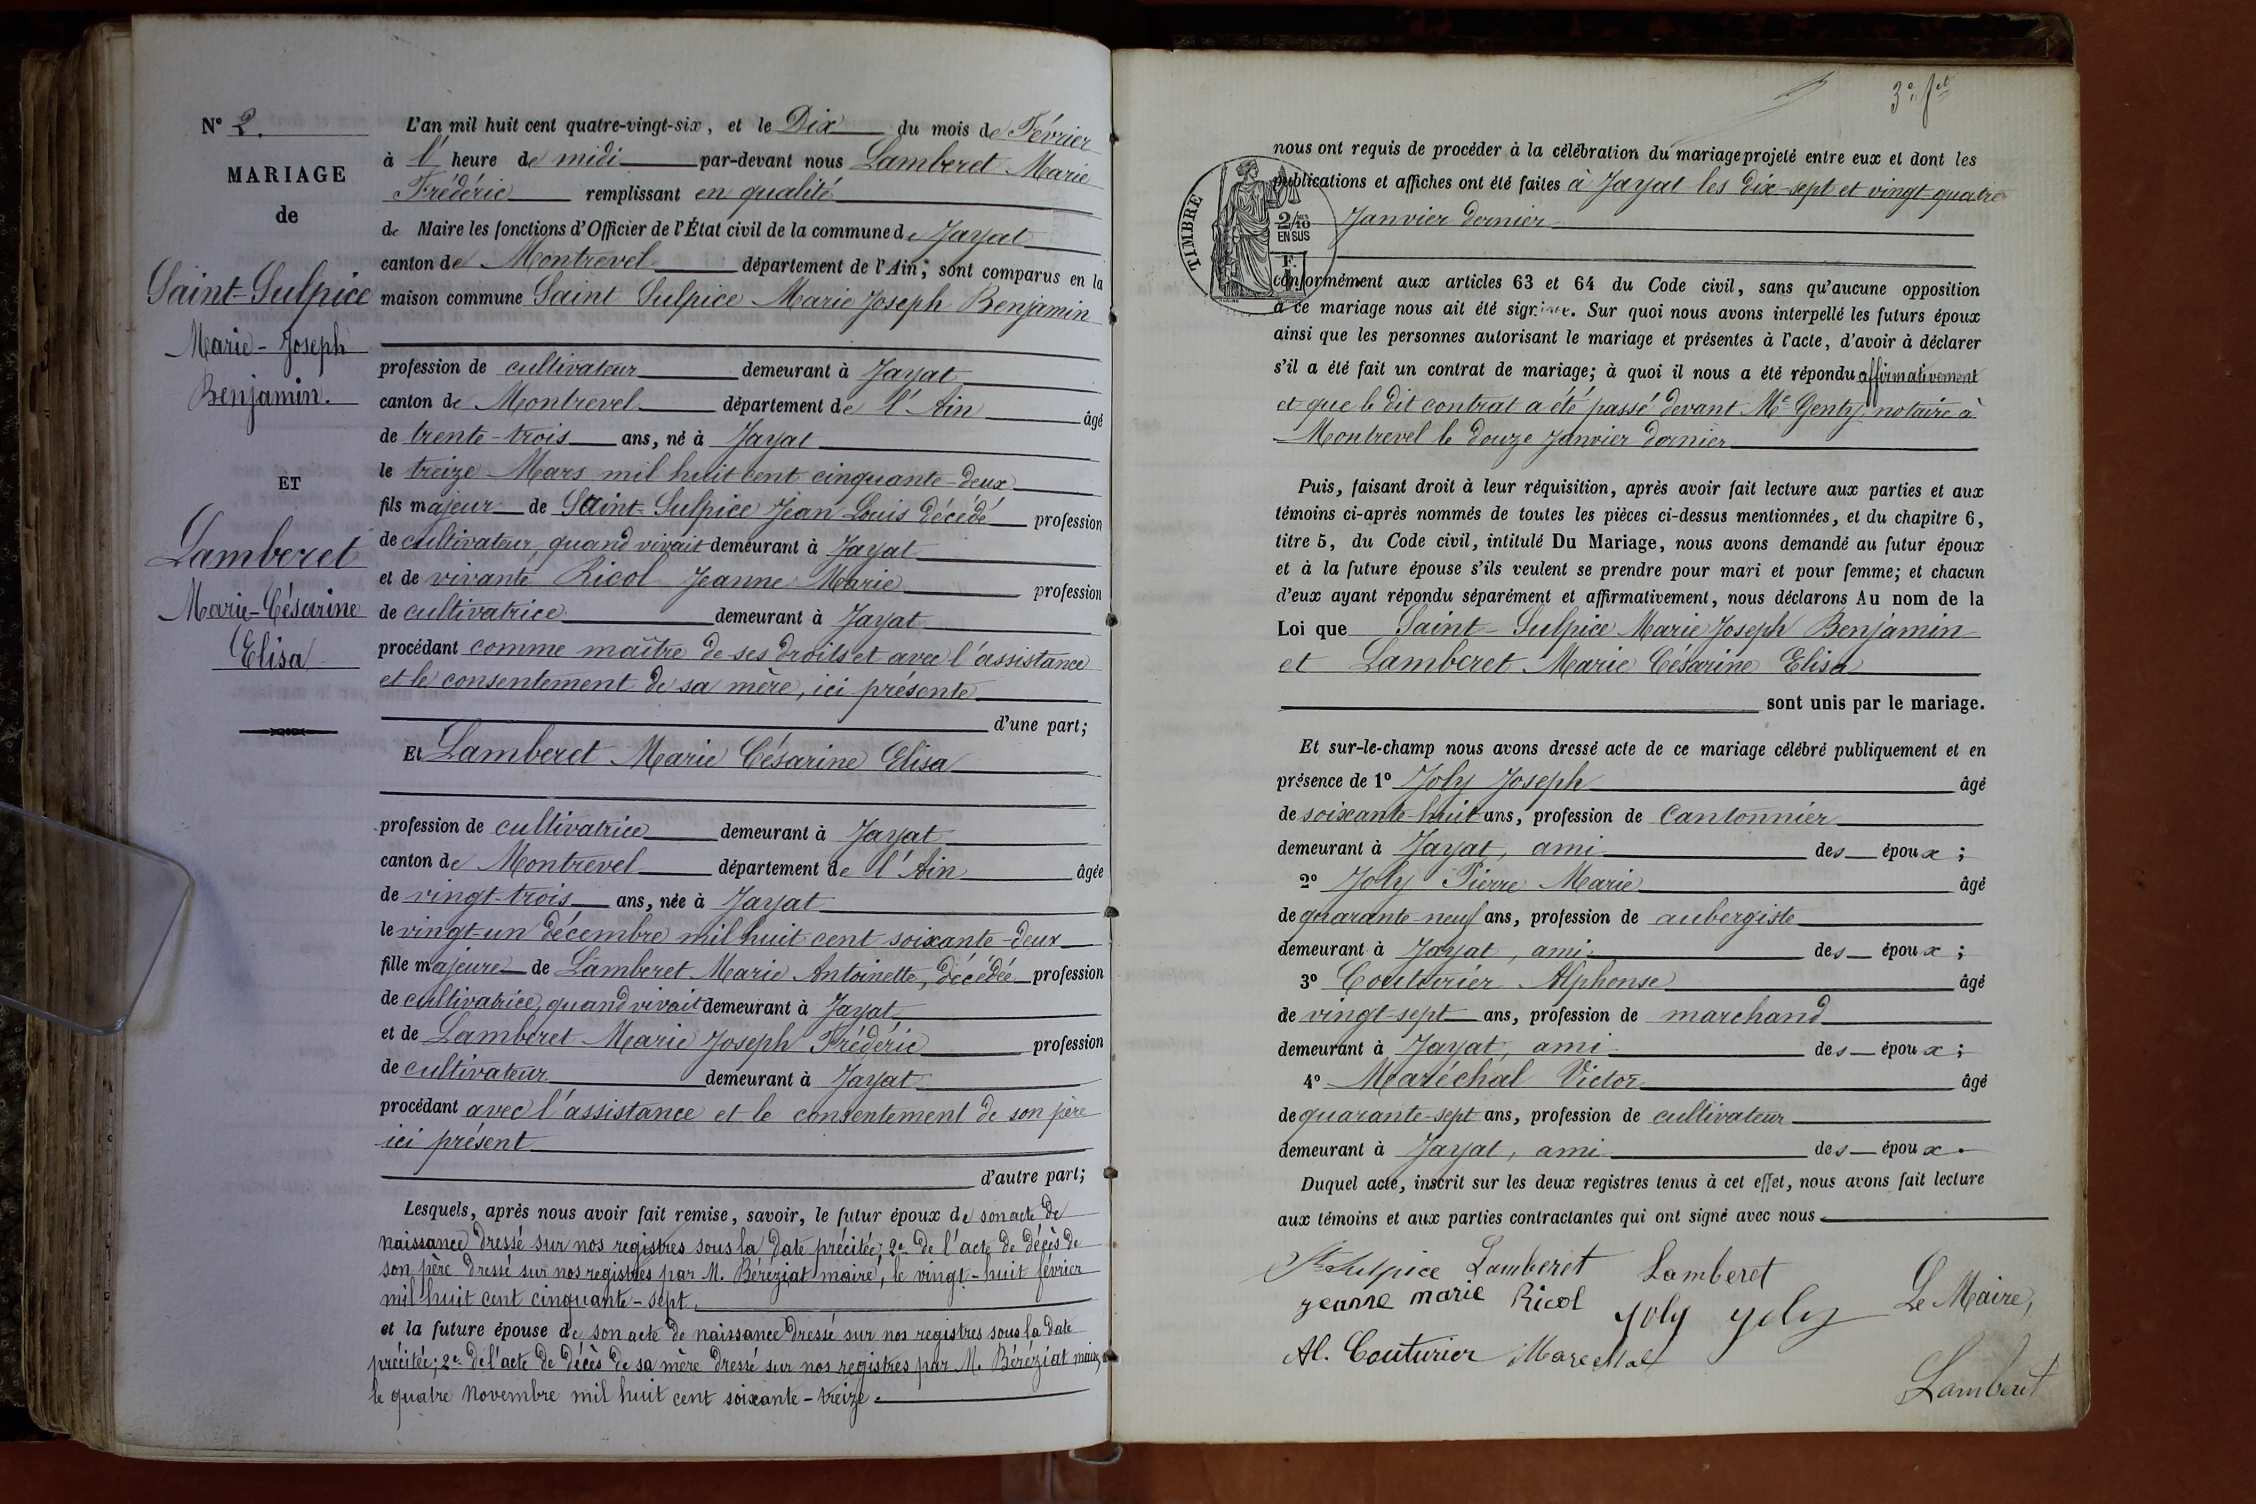 N° 2.
MARIAGE
de
Saint-Sulpice
Marie-Joseph
Benjamin.
ET
Lamberet
Marie-Césarine
Elisa
L'an mil huit cent quatre-vingt-six, et le Dix du mois de Février
à l' heure de midi par-devant nous Lamberet Marie
Frédéric remplissant en qualité
de Maire les fonctions d'Officier de l'État civil de la commune de Jayat
canton de Montrevel département de l'Ain; sont comparus en la
maison commune Saint Sulpice Marie Joseph Benjamin
profession de cultivateur demeurant à Jayat
canton de Montrevel département de l'Ain âgé
de trente-trois ans, né à Jayat
le treize Mars mil huit cent cinquante-deux
fils majeur de Saint-Sulpice Jean Louis décédé profession
de cultivateur, quand vivait demeurant à Jayat
et de vivante Ricol Jeanne Marie profession
de cultivatrice demeurant à Jayat
procédant comme maître de ses droits et avec l'assistance
et le consentement de sa mère, ici présente
d'une part;
Et Lamberet Marie Césarine Elisa
profession de cultivatrice demeurant à Jayat
canton de Montrevel département de l'Ain âgée
de vingt-trois ans, née à Jayat
le vingt-un décembre mil huit cent soixante-deux
fille majeure de Lamberet Marie Antoinette, décédée profession
de cultivatrice, quand vivait demeurant à Jayat
et de Lamberet Marie Joseph Frédéric profession
de cultivateur demeurant à Jayat
procédant avec l'assistance et le consentement de son père
ici présent
d'autre part;
Lesquels, après nous avoir fait remise, savoir, le futur époux de son acte de
naissance dressé sur nos registres sous la date précitée; 2° de l'acte de décès de
son père dressé sur nos registres par M. Béréziat maire, le vingt-huit février
mil huit cent cinquante-sept.
et la future épouse de son acte de naissance dressé sur nos registres sous la date
précitée; 2° de l'acte de décès de sa mère dressé sur nos registres par M. Béréziat maire,
le quatre Novembre mil huit cent soixante-treize.
3° fet
nous ont requis de procéder à la célébration du mariage projeté entre eux et dont les
publications et affiches ont été faites à Jayat les dix-sept et vingt-quatre
Janvier dernier
TIMBRE
2/10 EN SUS
conformément aux articles 63 et 64 du Code civil, sans qu'aucune opposition
à ce mariage nous ait été signifiée. Sur quoi nous avons interpellé les futurs époux
ainsi que les personnes autorisant le mariage et présentes à l'acte, d'avoir à déclarer
s'il a été fait un contrat de mariage; à quoi il nous a été répondu affirmativement
et que le dit contrat a été passé devant Me Genty, notaire à
Montrevel le douze Janvier dernier
Puis, faisant droit à leur réquisition, après avoir fait lecture aux parties et aux
témoins ci-après nommés de toutes les pièces ci-dessus mentionnées, et du chapitre 6,
titre 5, du Code civil, intitulé Du Mariage, nous avons demandé au futur époux
et à la future épouse s'ils veulent se prendre pour mari et pour femme; et chacun
d'eux ayant répondu séparément et affirmativement, nous déclarons Au nom de la
Loi que Saint-Sulpice Marie Joseph Benjamin
et Lamberet Marie Césarine Elisa
sont unis par le mariage.
Et sur-le-champ nous avons dressé acte de ce mariage célébré publiquement et en
présence de 1° Joly Joseph âgé
de soixante-huit ans, profession de Cantonnier
demeurant à Jayat, ami des époux;
2° Joly Pierre Marie âgé
de quarante-neuf ans, profession de aubergiste
demeurant à Jayat, ami des époux;
3° Couturier Alphonse âgé
de vingt-sept ans, profession de marchand
demeurant à Jayat, ami des époux;
4° Maréchal Victor âgé
de quarante-sept ans, profession de cultivateur
demeurant à Jayat, ami des époux.
Duquel acte, inscrit sur les deux registres tenus à cet effet, nous avons fait lecture
aux témoins et aux parties contractantes qui ont signé avec nous
St Sulpice Lamberet Lamberet
jeanne marie Ricol Joly Joly Le Maire,
Al. Couturier Marechal
Lamberet